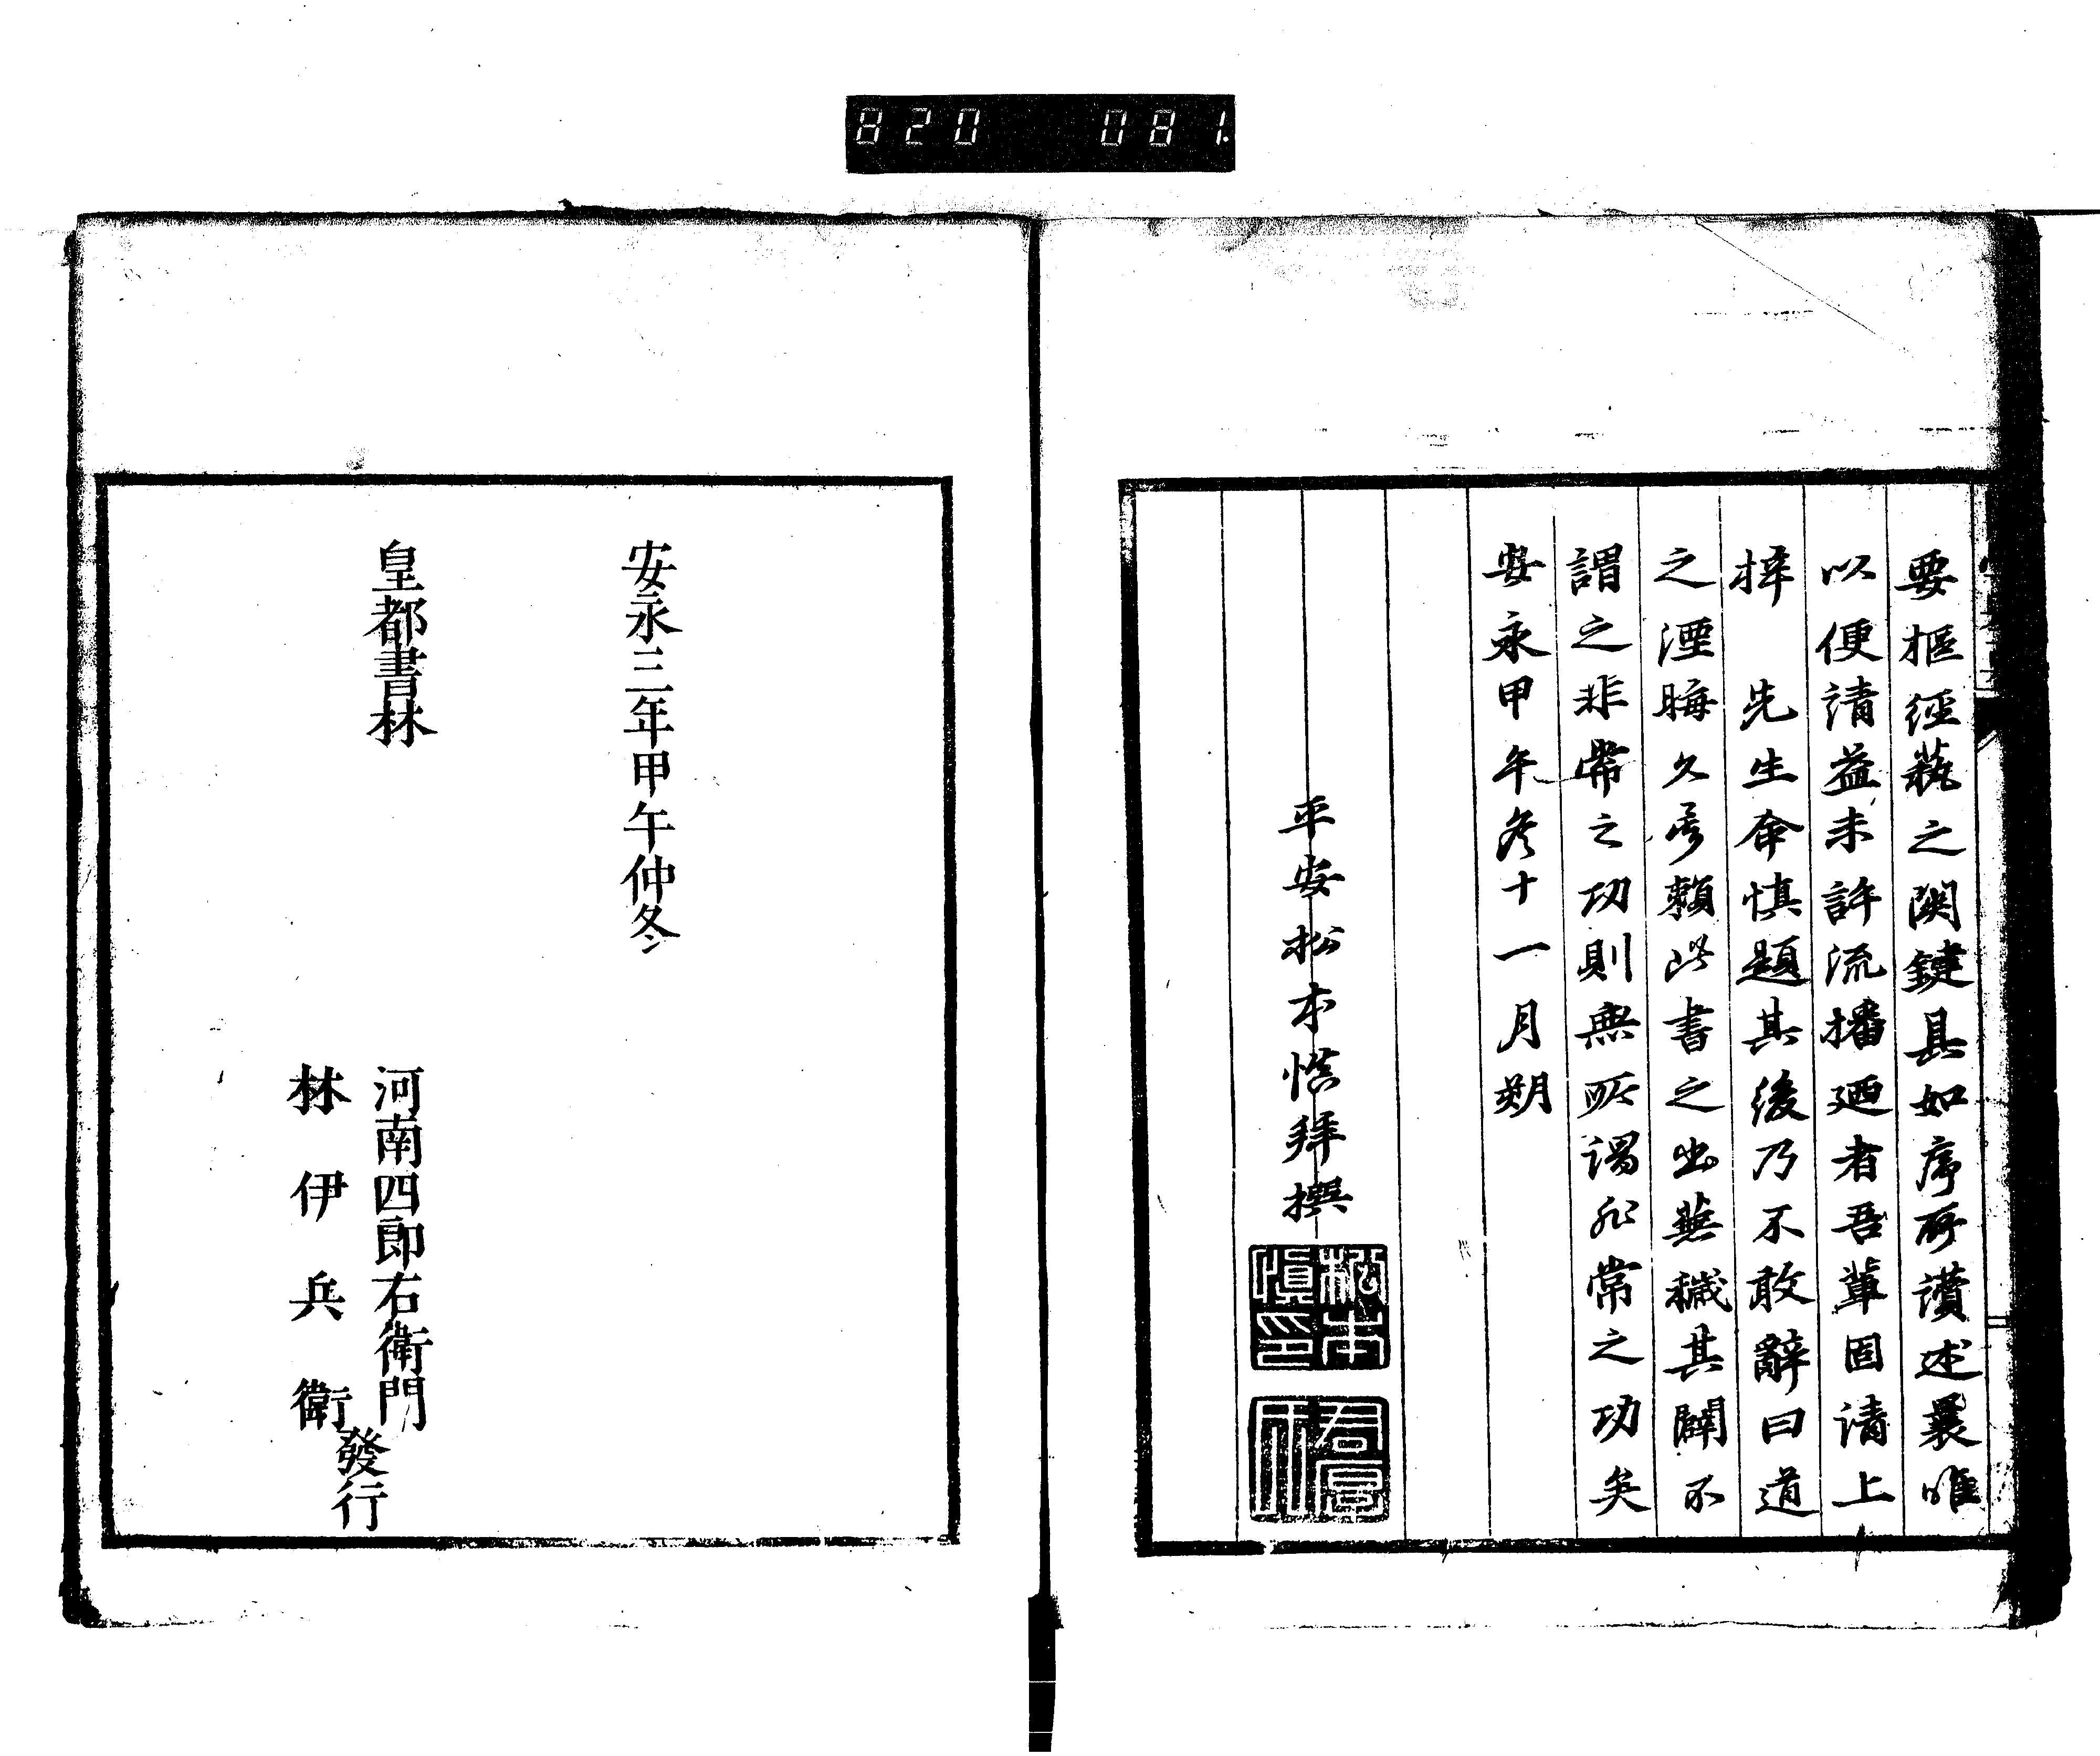 820 081
要樞經蓺之關鍵具如序所讚述曩唯
以便請益未許流播廼者吾輩固请上
梓　先生命慎題其後乃不敢辭曰道
之湮晦久矣賴此書之出蕪穢其闢不
謂之非常之功則無所謂非常之功矣
安永甲午冬十一月朔
平安松本慎拜撰
松本慎印
安永三年甲午仲冬
皇都書林
河南四郎右衛門
林伊兵衛
發行